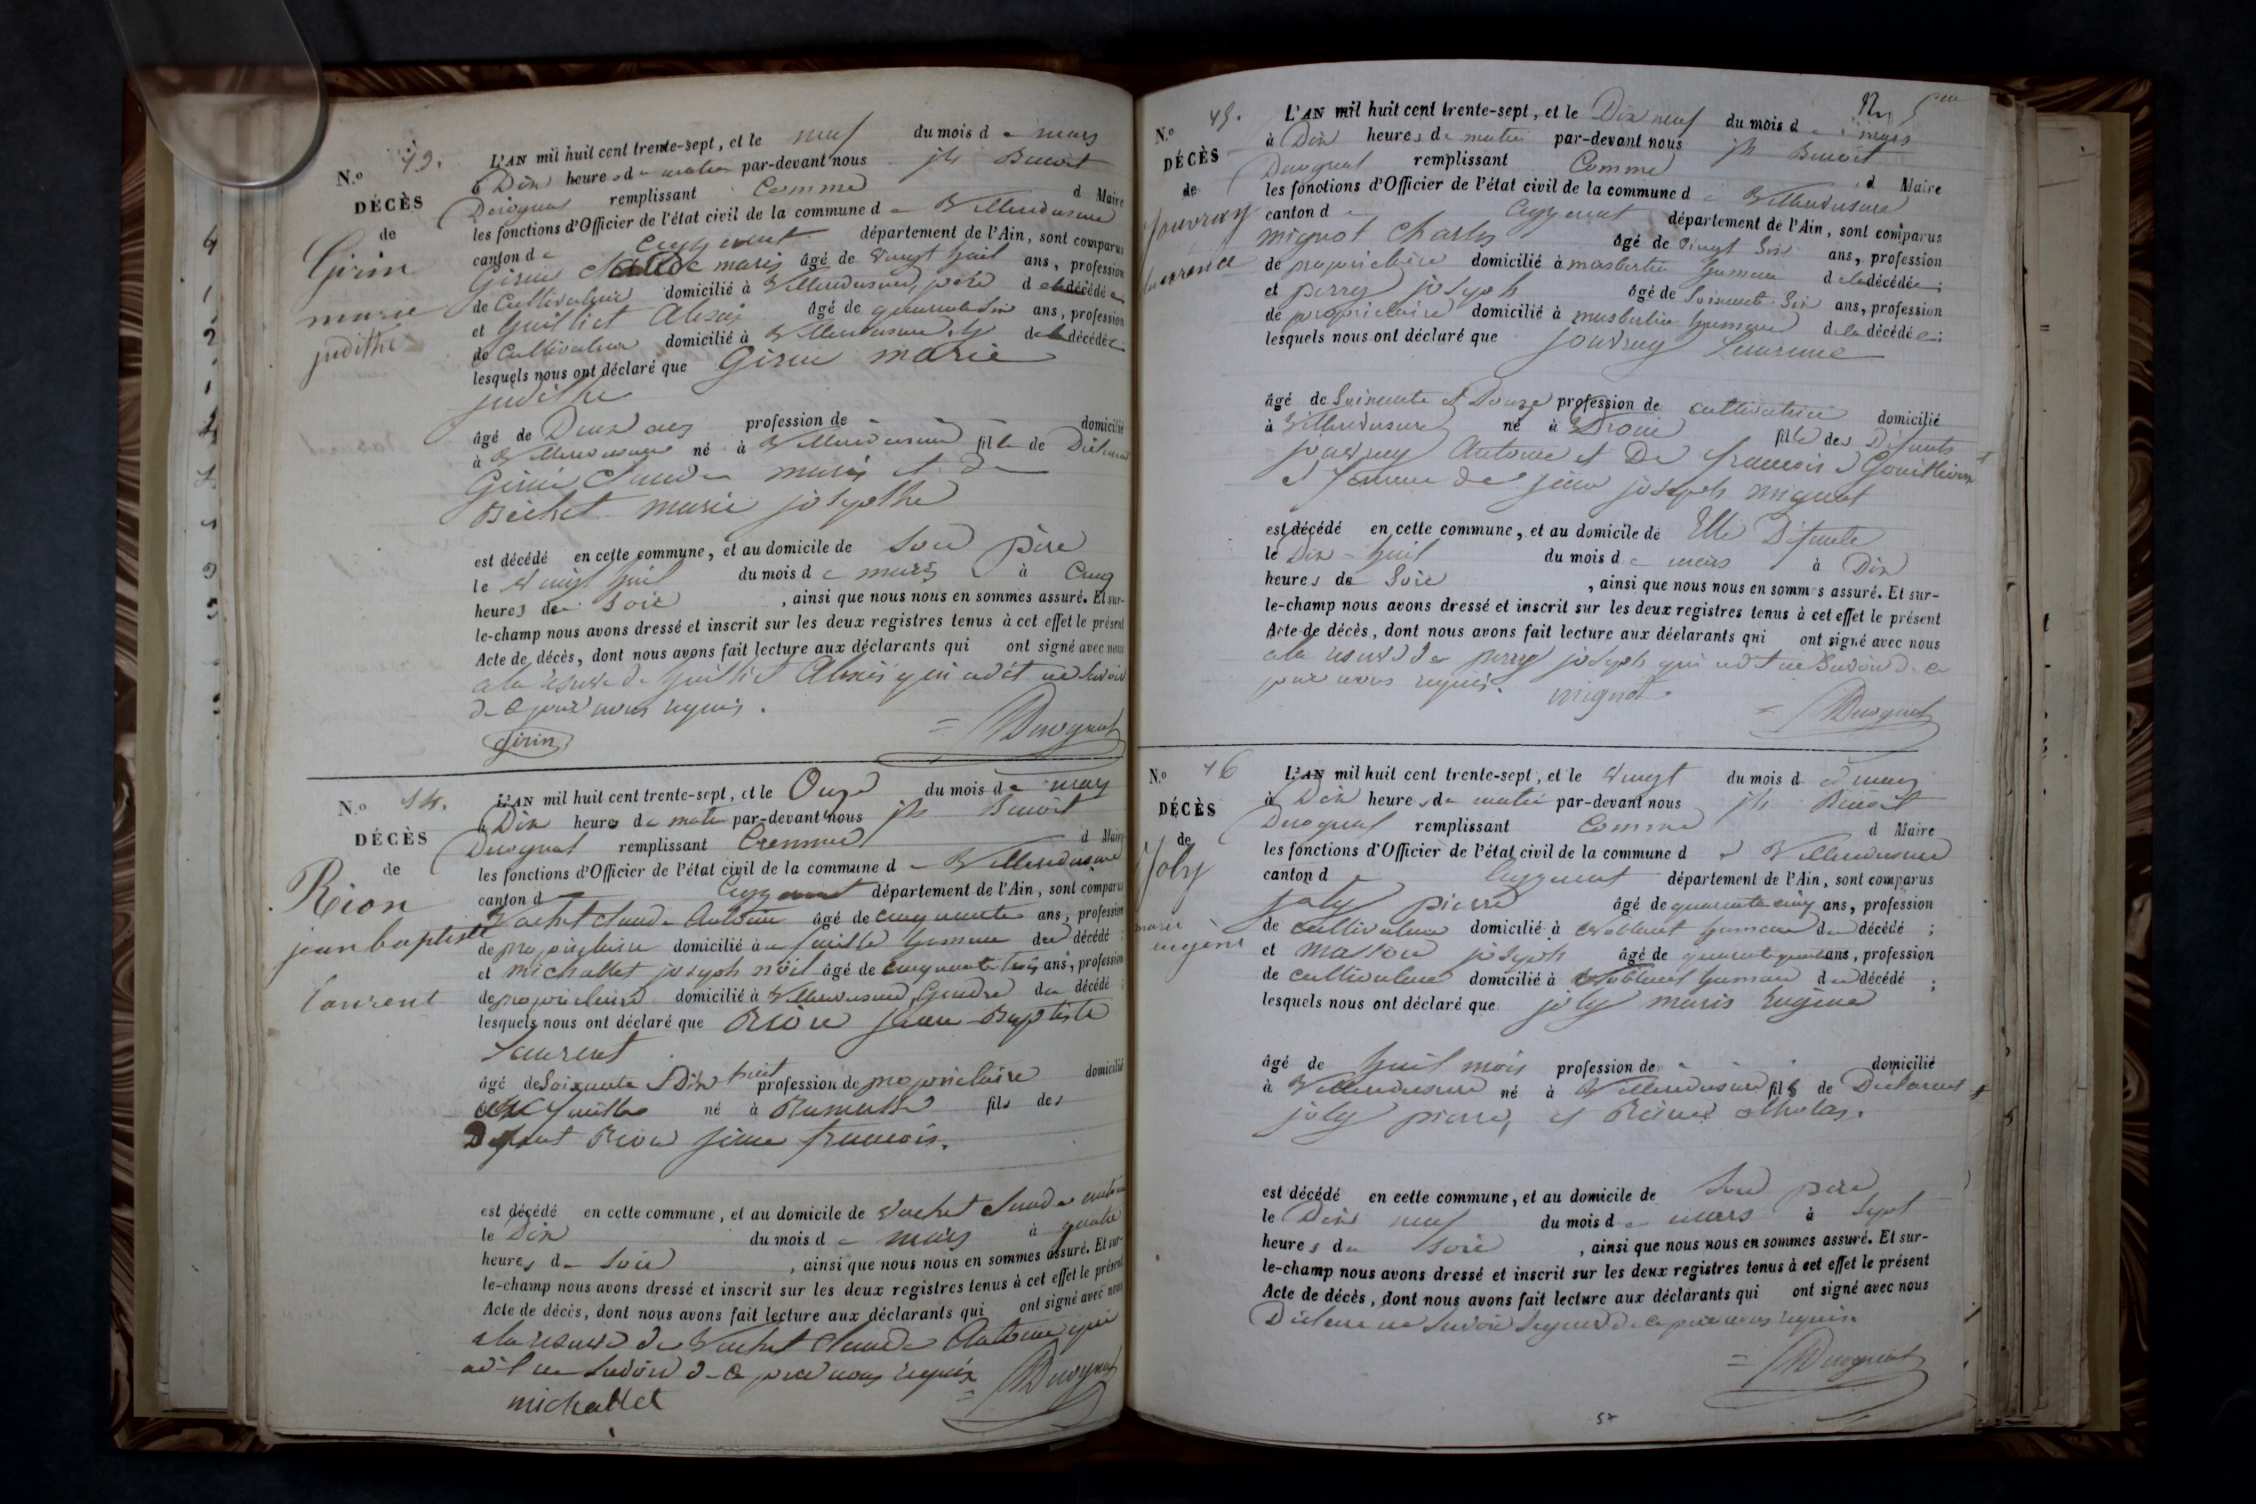 N.o 13.
DÉCÈS
de
Girin
marie
judithe
L'AN mil huit cent trente-sept, et le neuf du mois de mars
à Dix heures de matin par-devant nous jh Benoit
remplissant Comme d Maire
les fonctions d'Officier de l'état civil de la commune de Villereversure
canton de Ceyzeriat département de l'Ain, sont comparus
Girin Claude marie âgé de vingt huit ans, profession
de Cultivateur domicilié à Villereversure, père de la décédée
et Guilliet Alexis âgé de quarante six ans, profession
de Cultivateur domicilié à Villereversure, de la décédée
lesquels nous ont déclaré que Girin marie
judithe
âgé de Deux ans profession de domicilié
à Villereversure né à Villereversure fille de
Girin Claude marie et de
Bechet marie josephte
est décédé en cette commune, et au domicile de Son père
le vingt huit du mois de mars à Cinq
heures de Soir , ainsi que nous nous en sommes assuré. Et sur-
le-champ nous avons dressé et inscrit sur les deux registres tenus à cet effet le présent
Acte de décès, dont nous avons fait lecture aux déclarants qui ont signé avec nous
a la réserve de Guilliet Alexis qui a dit ne Savoir
de ce pour nous requis.
Girin
N.o 14.
DÉCÈS
de
Rion
jean baptiste
laurent
L'AN mil huit cent trente-sept, et le Onze du mois de mars
à Dix heures de matin par-devant nous jh Benoit
remplissant Comme d Maire
les fonctions d'Officier de l'état civil de la commune de Villereversure
canton d Ceyzeriat département de l'Ain, sont comparus
Vachet Claude Antoine âgé de cinquante ans, profession
de propriétaire domicilié à du décédé ;
et michallet joseph noël âgé de cinquante trois ans, profession
de propriétaire domicilié à Villereversure, Gendre du décédé ;
lesquels nous ont déclaré que Rion jean Baptiste
Laurent
âgé de Soixante Dix huit profession de propriétaire domicilié
né à Ramasse fils des
Defunt Rion jean francois.
est décédé en cette commune, et au domicile de Vachet Claude antoine
le Dix du mois de mars à quatre
heures de Soir , ainsi que nous nous en sommes assuré. Et sur-
le-champ nous avons dressé et inscrit sur les deux registres tenus à cet effet le présent
Acte de décès, dont nous avons fait lecture aux déclarants qui ont signé avec nous
a la réserve de Vachet Claude Antoine qui
a dit ne Savoir de ce pour nous requis
michallet
N.o 15.
DÉCÈS
de
Jouvray
laurence
L'AN mil huit cent trente-sept, et le Dix neuf du mois de mars
à Dix heures de matin par-devant nous jh Benoit
remplissant Comme d Maire
les fonctions d'Officier de l'état civil de la commune de Villereversure
canton de Ceyzeriat département de l'Ain, sont comparus
mignot Charles âgé de vingt Six ans, profession
de propriétaire domicilié à de la décédée ;
et perrey joseph âgé de Soixante Six ans, profession
de propriétaire domicilié à de la décédée ;
lesquels nous ont déclaré que jouvray Laurence
âgé de Soixante et Douze profession de cultivatrice domicilié
à Villereversure né à Drom fille des Défunts
jouvray Antoine et De francoise
et femme de jean joseph mignot
est décédé en cette commune, et au domicile de Elle Défunte
le Dix-huit du mois de mars à Dix
heures de Soir , ainsi que nous nous en sommes assuré. Et sur-
le-champ nous avons dressé et inscrit sur les deux registres tenus à cet effet le présent
Acte de décès, dont nous avons fait lecture aux déclarants qui ont signé avec nous
a la réserve de perrey joseph qui a dit ne Savoir de ce
pour nous requis. mignot
N.o 16
DÉCÈS
de
Joly
marie
eugene
L'AN mil huit cent trente-sept, et le vingt du mois d mars
à Dix heures de matin par-devant nous jh Benoit
remplissant Comme d Maire
les fonctions d'Officier de l'état civil de la commune d Villereversure
canton d Ceyzeriat département de l'Ain, sont comparus
joly pierre âgé de quarante cinq ans, profession
de cultivateur domicilié à du décédé ;
et Masson joseph âgé de ans, profession
de cultivateur domicilié à du décédé ;
lesquels nous ont déclaré que joly marie Eugene
âgé de huit mois profession de domicilié
à Villereversure né à Villereversure fils de
joly pierre, et
est décédé en cette commune, et au domicile de Son père
le Dix neuf du mois de mars à Sept
heures du Soir , ainsi que nous nous en sommes assuré. Et sur-
le-champ nous avons dressé et inscrit sur les deux registres tenus à cet effet le présent
Acte de décès, dont nous avons fait lecture aux déclarants qui ont signé avec nous
ne Savoir Signer de ce pour nous requis.
57